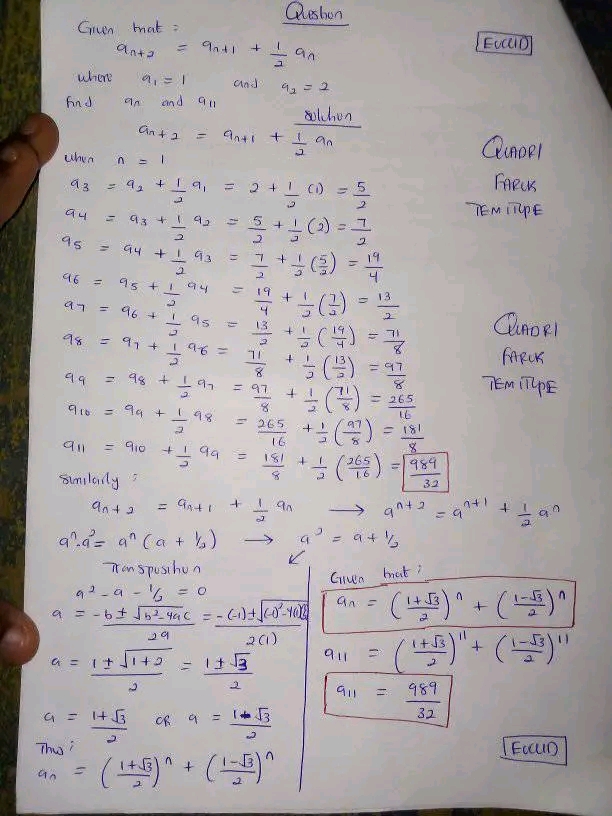 Question
Given that :
EUCLID
aₙ₊₂ = aₙ₊₁ + 1/2 aₙ
where a₁ = 1 and a₂ = 2
find aₙ and a₁₁
solution
aₙ₊₂ = aₙ₊₁ + 1/2 aₙ
when n = 1
a₃ = a₂ + 1/2 a₁ = 2 + 1/2 (1) = 5/2
a₄ = a₃ + 1/2 a₂ = 5/2 + 1/2 (2) = 7/2
a₅ = a₄ + 1/2 a₃ = 7/2 + 1/2 (5/2) = 19/4
a₆ = a₅ + 1/2 a₄ = 19/4 + 1/2 (7/2) = 13/2
a₇ = a₆ + 1/2 a₅ = 13/2 + 1/2 (19/4) = 71/8
a₈ = a₇ + 1/2 a₆ = 71/8 + 1/2 (13/2) = 97/8
a₉ = a₈ + 1/2 a₇ = 97/8 + 1/2 (71/8) = 265/16
a₁₀ = a₉ + 1/2 a₈ = 265/16 + 1/2 (97/8) = 181/8
a₁₁ = a₁₀ + 1/2 a₉ = 181/8 + 1/2 (265/16) = 989/32
QUADRI
FARUK
TEMITYPE
QUADRI
FARUK
TEMITYPE
Similarly ;
aₙ₊₂ = aₙ₊₁ + 1/2 aₙ → aⁿ⁺² = aⁿ⁺¹ + 1/2 aⁿ
aⁿ·a² = aⁿ (a + 1/2) → a² = a + 1/2
Transposition
a² - a - 1/2 = 0
a = -b ± √(b² - 4ac)/2a = -(-1) ± √((-1)² - 4(1)½)/2(1)
a = 1 ± √(1+2)/2 = 1 ± √3/2
a = 1+√3/2 OR a = 1-√3/2
Thus ;
aₙ = (1+√3/2)ⁿ + (1-√3/2)ⁿ
Given that ;
aₙ = (1+√3/2)ⁿ + (1-√3/2)ⁿ
a₁₁ = (1+√3/2)¹¹ + (1-√3/2)¹¹
a₁₁ = 989/32
EUCLID